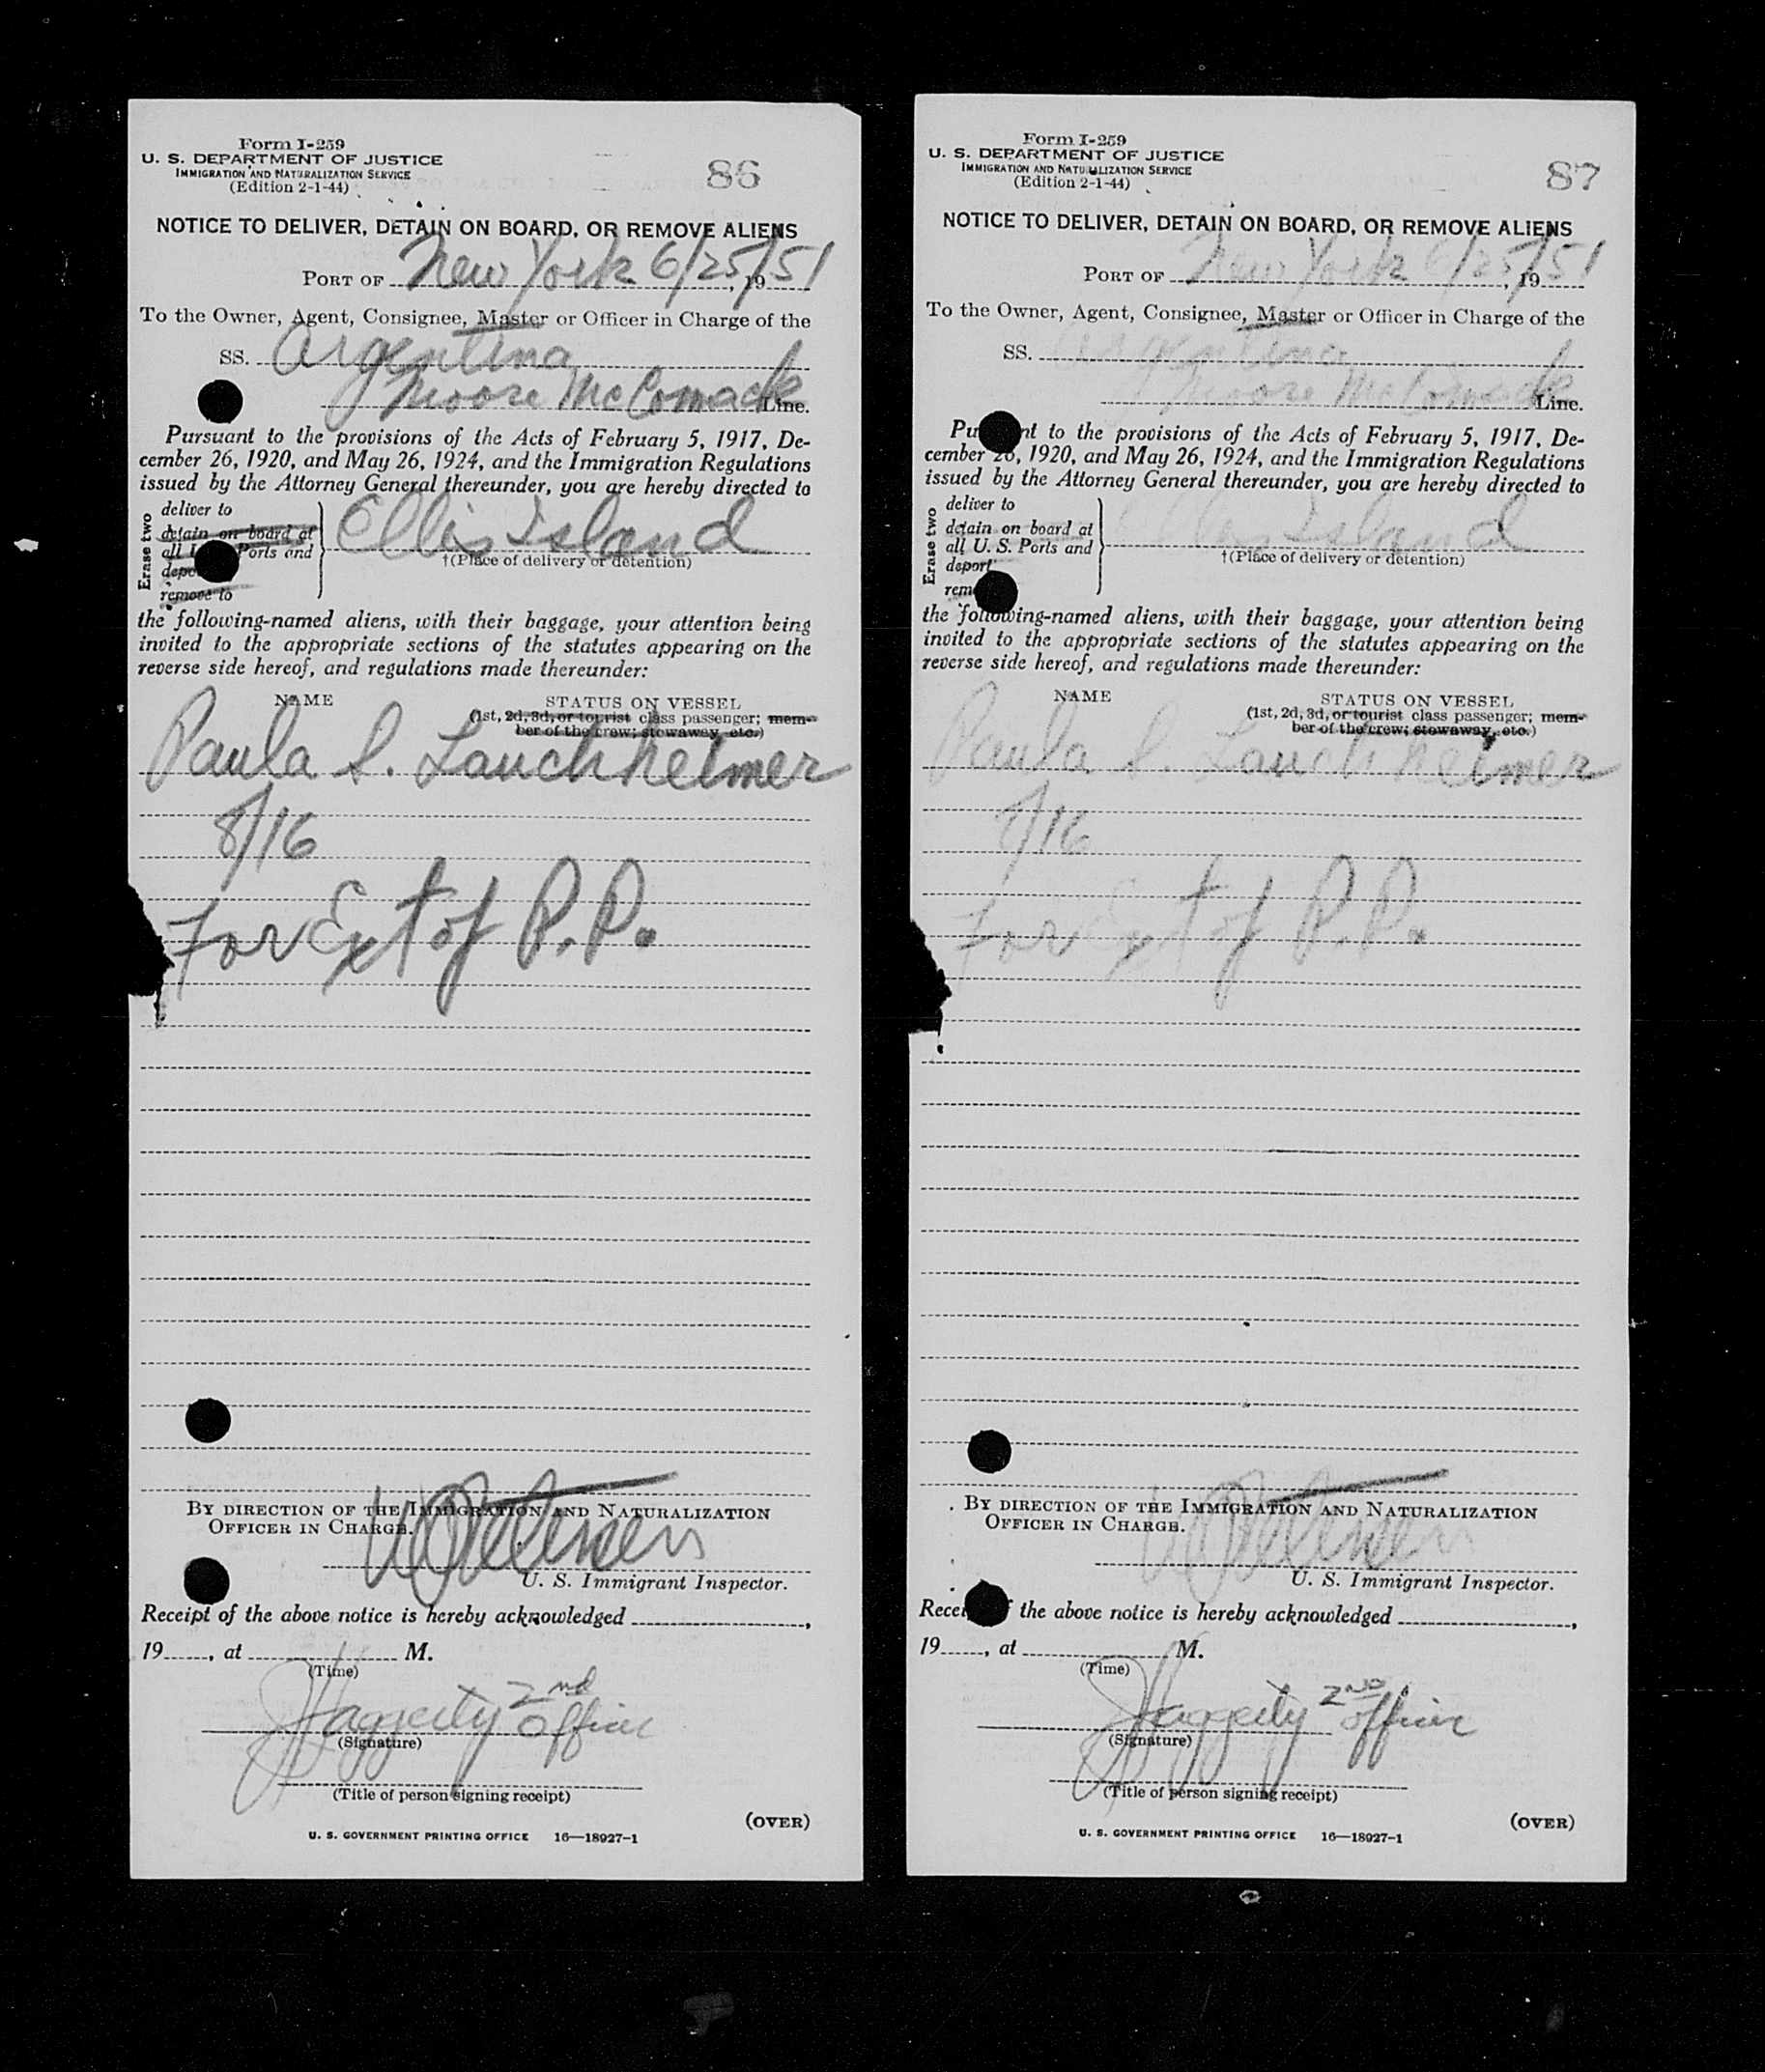 Form I-259
U. S. DEPARTMENT OF JUSTICE
IMMIGRATION AND NATURALIZATION SERVICE
(Edition 2-1-44)
86
NOTICE TO DELIVER, DETAIN ON BOARD, OR REMOVE ALIENS
PORT OF New York 6/25/51, 19
To the Owner, Agent, Consignee, Master or Officer in Charge of the
SS. Argentina
Moore McComack Line.
Pursuant to the provisions of the Acts of February 5, 1917, De-
cember 26, 1920, and May 26, 1924, and the Immigration Regulations
issued by the Attorney General thereunder, you are hereby directed to
Erase two
deliver to
detain on board at
all U. S. Ports and
deport
remove to
Ellis Island
†(Place of delivery or detention)
the following-named aliens, with their baggage, your attention being
invited to the appropriate sections of the statutes appearing on the
reverse side hereof, and regulations made thereunder:
NAME
STATUS ON VESSEL
(1st, 2d, 3d, or tourist class passenger; mem-
ber of the crew; stowaway, etc.)
Paula S. Lauchheimer
8/16
For Ext of P.P.
BY DIRECTION OF THE IMMIGRATION AND NATURALIZATION
OFFICER IN CHARGE.
U. S. Immigrant Inspector.
Receipt of the above notice is hereby acknowledged ,
19 , at M.
(Time)
Haggerty 2nd officer
(Signature)
(Title of person signing receipt)
(OVER)
U. S. GOVERNMENT PRINTING OFFICE 16—18927-1
Form I-259
U. S. DEPARTMENT OF JUSTICE
IMMIGRATION AND NATURALIZATION SERVICE
(Edition 2-1-44)
87
NOTICE TO DELIVER, DETAIN ON BOARD, OR REMOVE ALIENS
PORT OF New York 6/25/51, 19
To the Owner, Agent, Consignee, Master or Officer in Charge of the
SS. Argentina
Moore McComack Line.
Pursuant to the provisions of the Acts of February 5, 1917, De-
cember 26, 1920, and May 26, 1924, and the Immigration Regulations
issued by the Attorney General thereunder, you are hereby directed to
Erase two
deliver to
detain on board at
all U. S. Ports and
deport
rem
Ellis Island
†(Place of delivery or detention)
the following-named aliens, with their baggage, your attention being
invited to the appropriate sections of the statutes appearing on the
reverse side hereof, and regulations made thereunder:
NAME
STATUS ON VESSEL
(1st, 2d, 3d, or tourist class passenger; mem-
ber of the crew; stowaway, etc.)
Paula S. Lauchheimer
8/16
For Ext of P.P.
BY DIRECTION OF THE IMMIGRATION AND NATURALIZATION
OFFICER IN CHARGE.
U. S. Immigrant Inspector.
Receipt of the above notice is hereby acknowledged ,
19 , at M.
(Time)
Haggerty 2ND officer
(Signature)
(Title of person signing receipt)
(OVER)
U. S. GOVERNMENT PRINTING OFFICE 16—18927-1